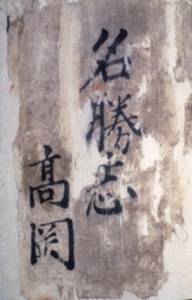 名勝志
髙岡